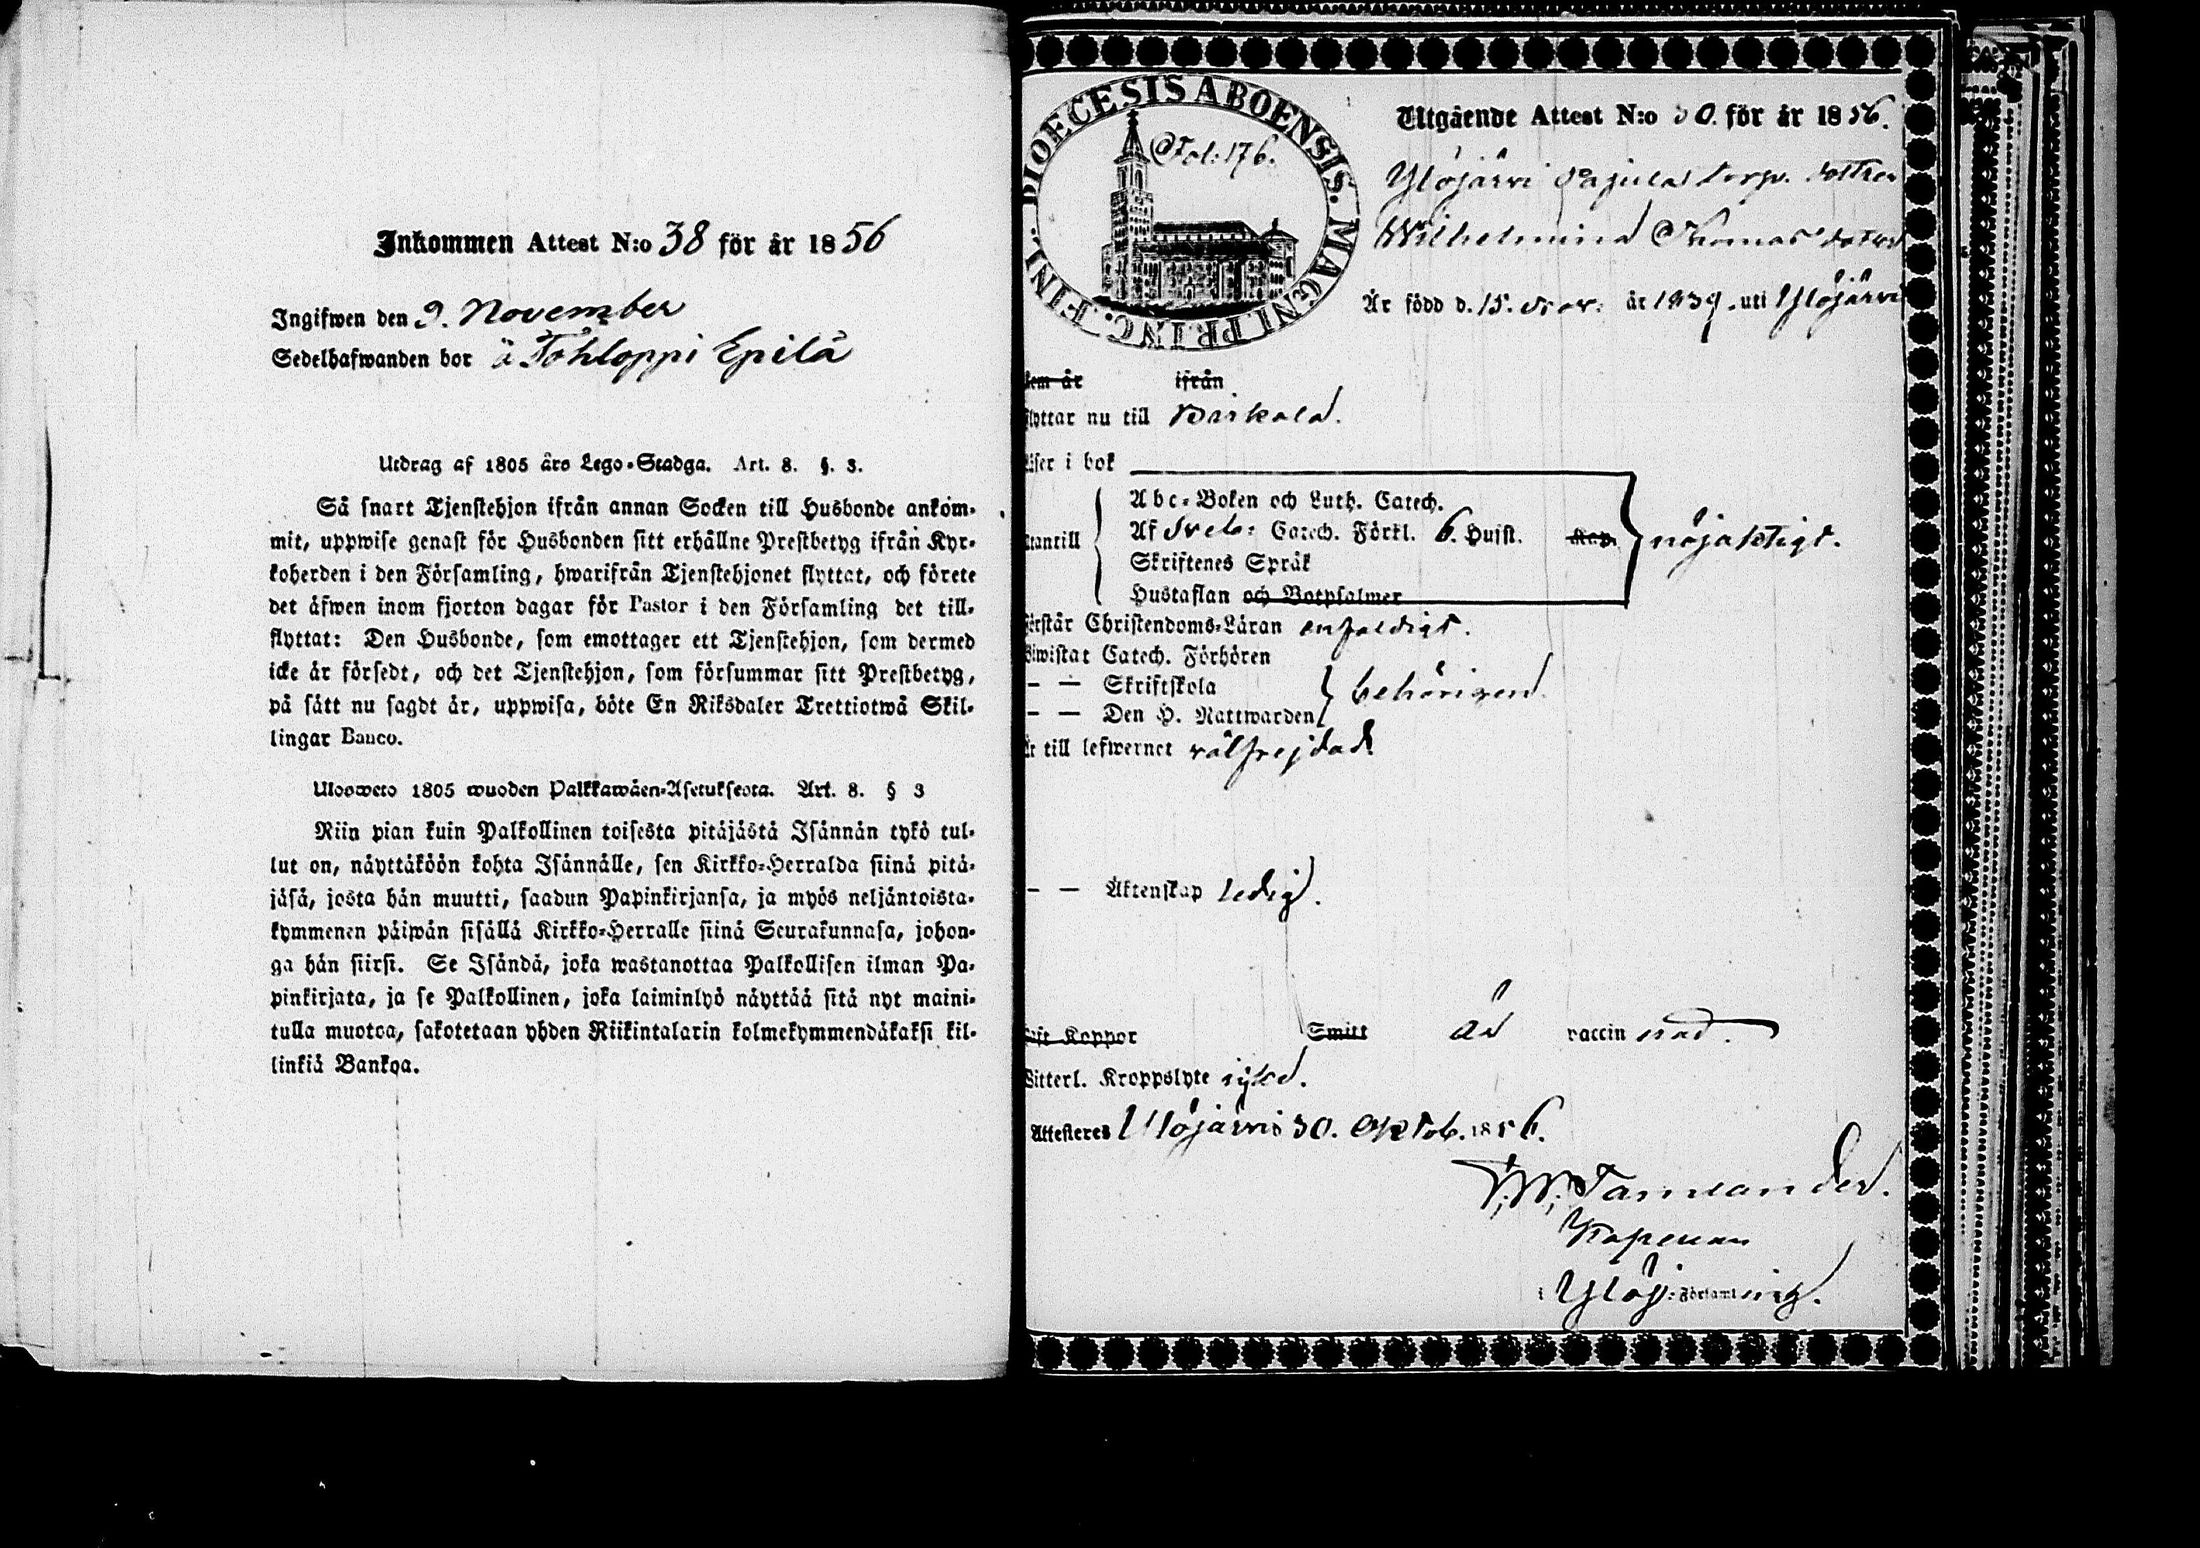 Inkommen Attest N:o 38 för år 1856
Ingifwen den 9. November
Sedelhafwanden bor å Tohloppi Epilä
Utdrag af 1805 års Lego-Stadga. Art. 8. §. 3.
Så snart Tjenstehjon ifrån annan Socken till Husbonde ankom-
mit, uppwise genast för Husbonden sitt erhållne Prestbetyg ifrån Kyr-
koherden i den Församling, hwarifrån Tjenstehjonet flyttat, och förete
det äfwen inom fjorton dagar för Pastor i den Församling det till-
flyttat: Den Husbonde, som emottager ett Tjenstehjon, som dermed
icke är försedt, och det Tjenstehjon, som försummar sitt Prestbetyg,
på sätt nu sagdt är, uppwisa, böte En Riksdaler Trettiotwå Skil-
lingar Banco.
Ulosweto 1805 wuoden Palkkawäen-Asetuksesta. Art. 8. § 3
Niin pian kuin Palkollinen toisesta pitäjästä Isännän tykö tul-
lut on, näyttäköön kohta Isännälle, sen Kirkko-Herralda siinä pitä-
jäsä, josta hän muutti, saadun Papinkirjansa, ja myös neljäntoista-
kymmenen päiwän sisällä Kirkko-Herralle siinä Seurakunnasa, johon-
ga hän siirsi. Se Isändä, joka wastanottaa Palkollisen ilman Pa-
pinkirjata, ja se Palkollinen, joka laiminlyö näyttää sitä nyt maini-
tulla muotoa, sakotetaan yhden Riikintalarin kolmekymmendäkaksi kil-
linkiä Bankoa.
DIOECESIS ABOENSIS. MAGNI PRINC. FINL.
Fol: 176.
Utgående Attest N:o 30. för år 1856.
Ylöjärvi Pajulas torp. dottren
Wilhelmina Thomasdotter
Är född d. 15. Nov: år 1839. uti Ylöjärvi
kom år ifrån
flyttar nu till Birkala.
Läser i bok
utantill
Abc-Boken och Luth. Catech.
Af Sveb: Catech. Förkl. 6. Hufst. Kap. nöjaktigt.
Skriftenes Språk
Hustaflan och Botpsalmer
Förstår Christendoms-Läran enfaldigt.
Biwistat Catech. Förhören
— — Skriftskola behörigen.
— — Den H. Nattwarden
Är till lefwernet välfrejdad
— — Äktenskap ledig.
Haft Koppor Smitt är vaccinerad.
Witterl. Kroppslyte
Attesteres Ylöjärvi 30. Oktob. 1856.
F. W. Tamlander.
Kapellan
i Ylöj: Församling.